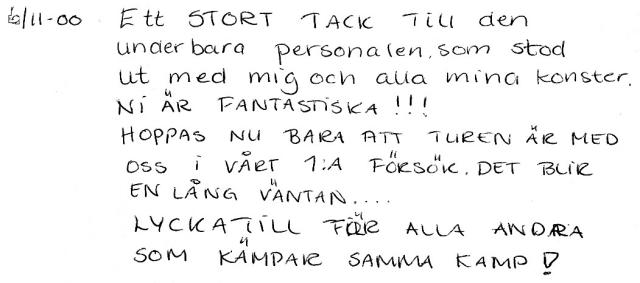 6/11-00 Ett STORT TACK Till den
underbara personalen, som stod
ut med mig och alla mina konster.
Ni ÄR FANTASTISKA!!!
HOPPAS NU BARA ATT TUREN ÄR MED
OSS i VÅRT 1:A FÖRSÖK. DET BLIR
EN LÅNG VÄNTAN....
LYCKA TILL FÖR ALLA ANDRA
SOM KÄMPAR SAMMA KAMP!